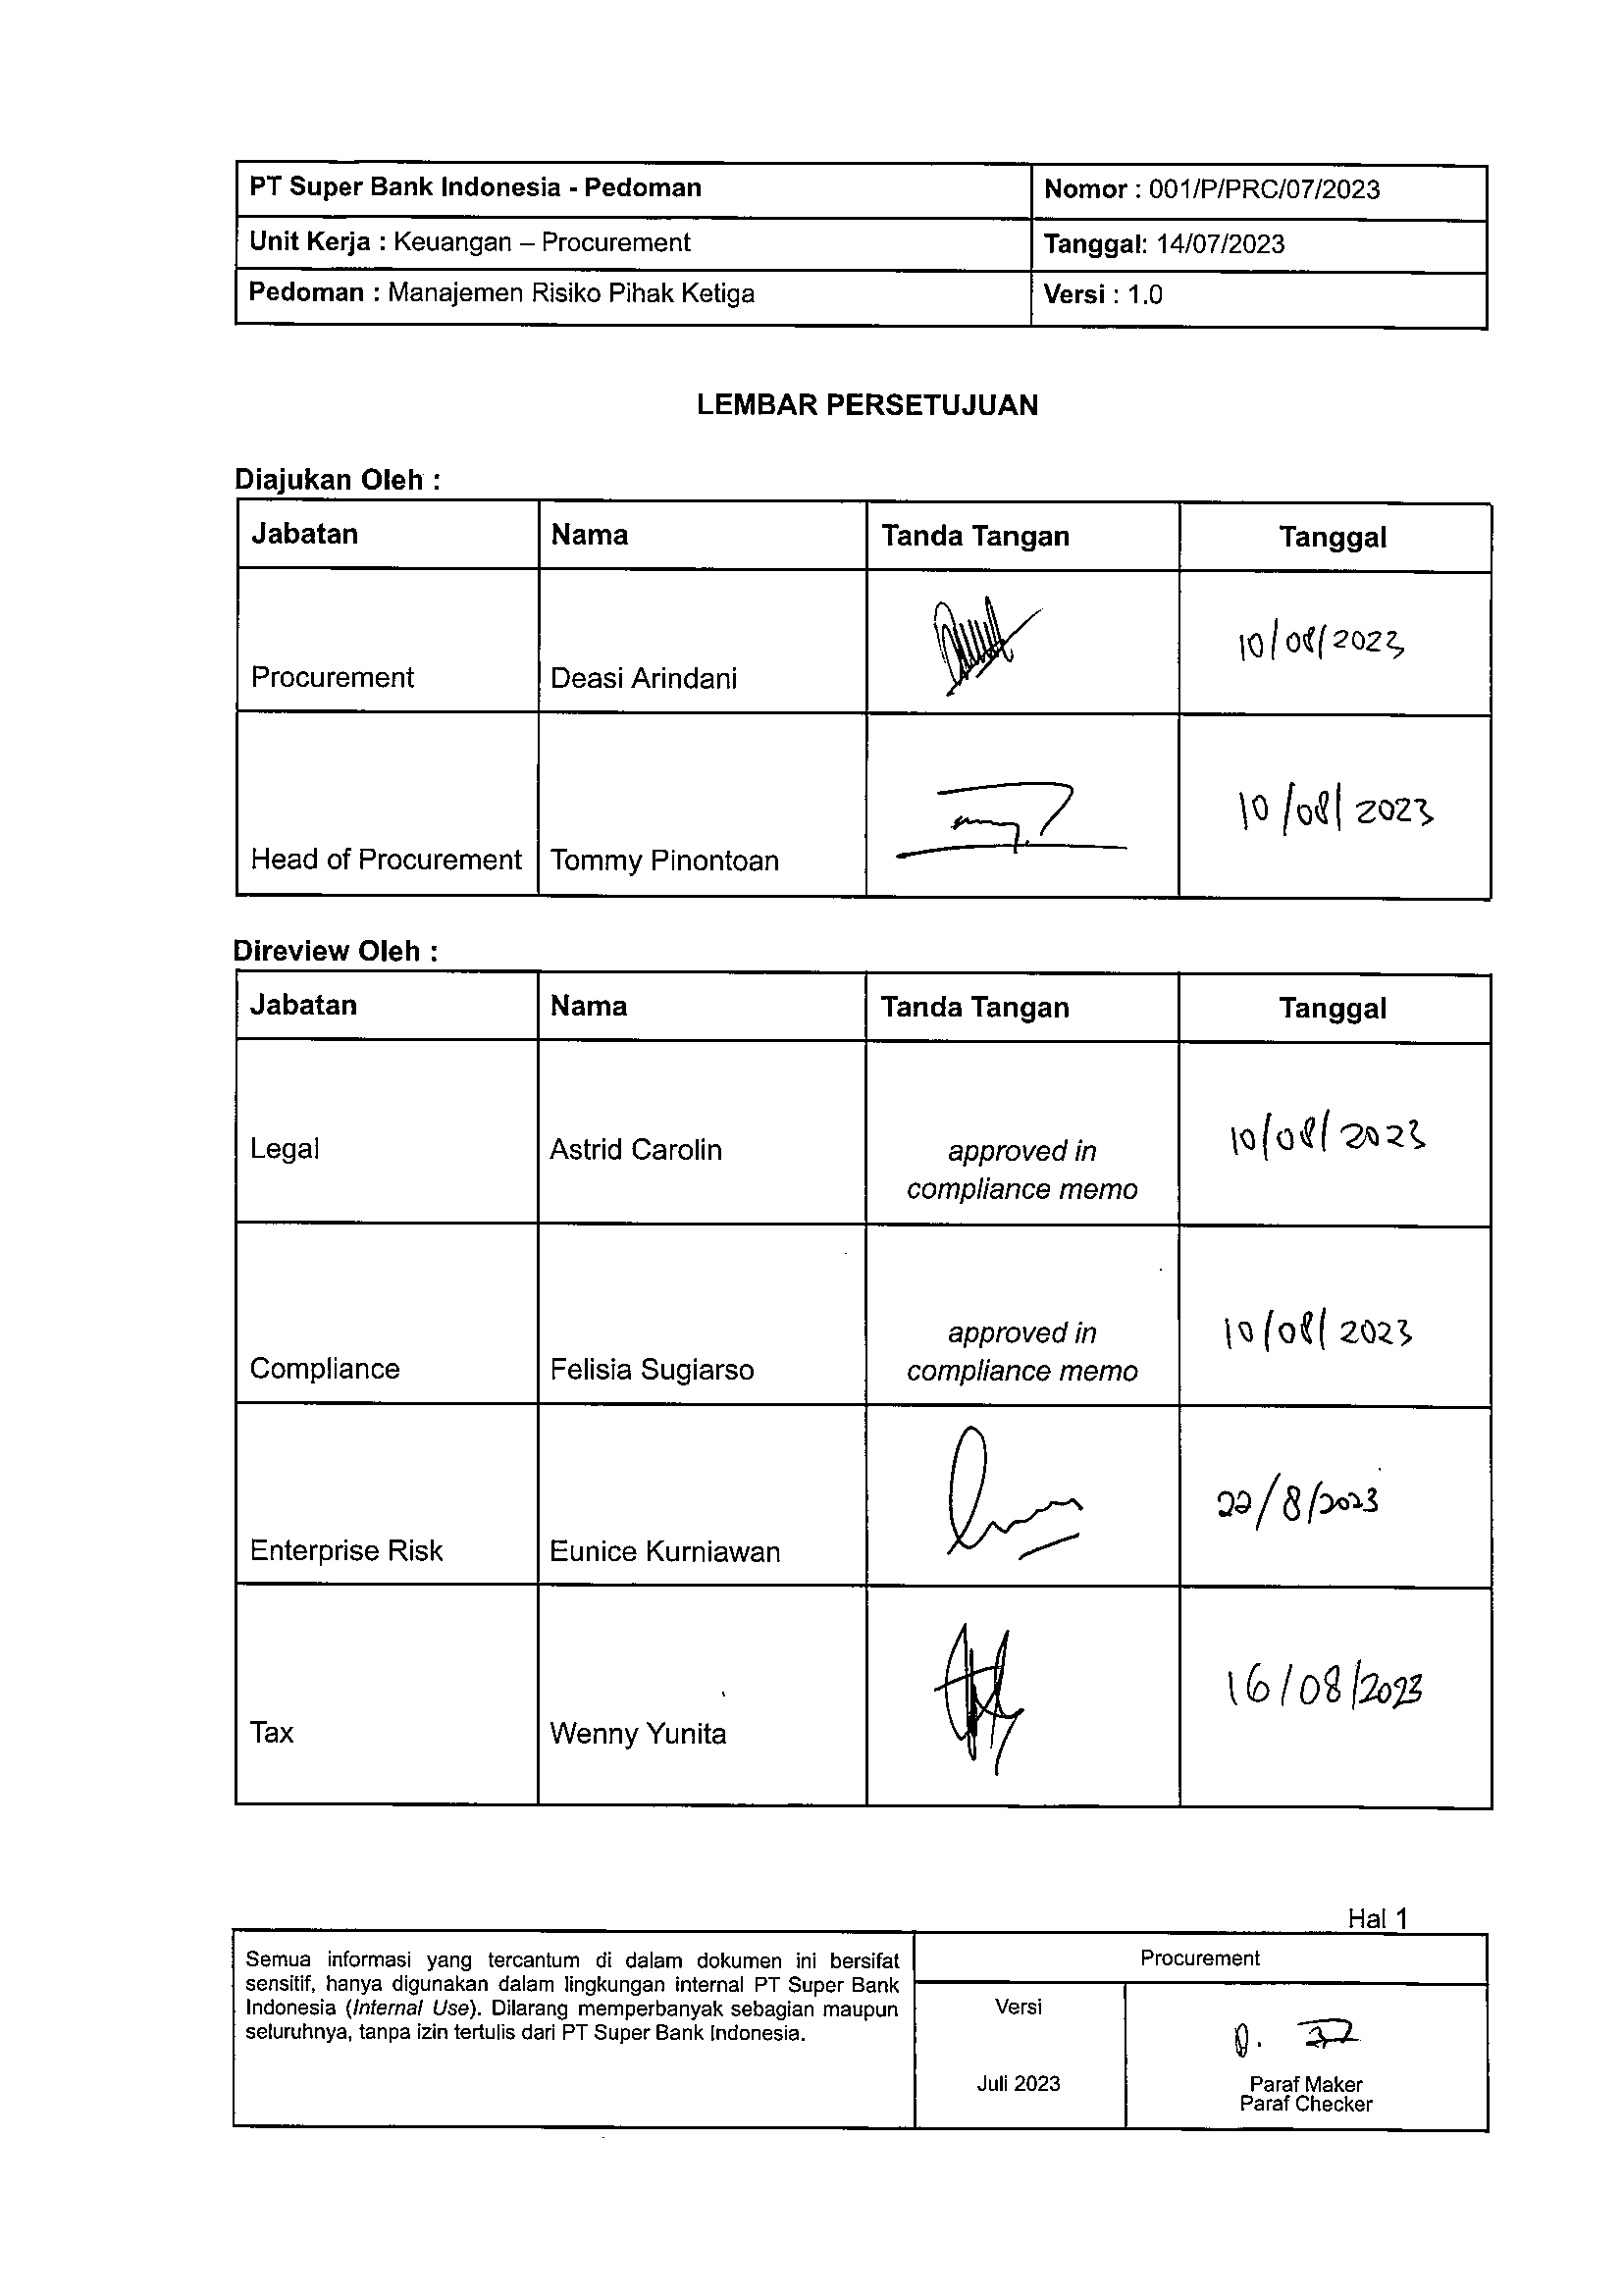 PT Super Bank Indonesia - Pedoman
Nomor : 001/P/PRC/07/2023
Unit Kerja : Keuangan – Procurement
Tanggal: 14/07/2023
Pedoman : Manajemen Risiko Pihak Ketiga
Versi : 1.0
LEMBAR PERSETUJUAN
Diajukan Oleh :
Jabatan Nama Tanda Tangan Tanggal
10/08/2023
Procurement Deasi Arindani
10/08/2023
Head of Procurement Tommy Pinontoan
Direview Oleh :
Jabatan Nama Tanda Tangan Tanggal
10/08/2023
Legal Astrid Carolin approved in
compliance memo
10/08/2023
approved in
Compliance Felisia Sugiarso compliance memo
22/8/2023
Enterprise Risk Eunice Kurniawan
16/08/2023
Tax Wenny Yunita
Hal 1
Semua informasi yang tercantum di dalam dokumen ini bersifat
sensitif, hanya digunakan dalam lingkungan internal PT Super Bank
Indonesia (Internal Use). Dilarang memperbanyak sebagian maupun
seluruhnya, tanpa izin tertulis dari PT Super Bank Indonesia.
Procurement
Versi
Juli 2023
Paraf Maker
Paraf Checker